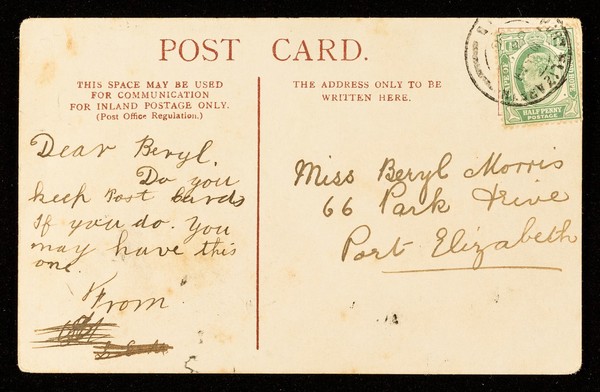 POST CARD.
THIS SPACE MAY BE USED
FOR COMMUNICATION
FOR INLAND POSTAGE ONLY.
(Post Office Regulation.)
THE ADDRESS ONLY TO BE
WRITTEN HERE.
HALFPENNY
POSTAGE
Dear Beryl.
Do you
keep Post Cards
If you do. you
may have this
one.
From
Miss Beryl Morris
66 Park Drive
Port Elizabeth